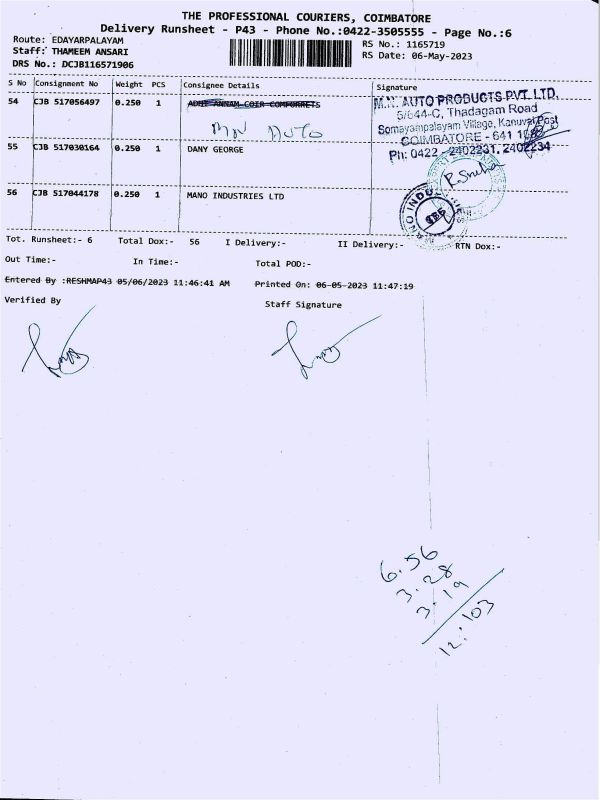 THE PROFESSIONAL COURIERS, COIMBATORE
Delivery Runsheet - P43 - Phone No.:0422-3505555 - Page No.:6
Route: EDAYARPALAYAM
RS No.: 1165719
Staff: THAMEEM ANSARI
RS Date: 06-May-2023
DRS No.: DCJB116571906
S No Consignment No Weight PCS Consignee Details Signature
54 CJB 517056497 0.250 1 ADHI ANNAM COIR COMFORRETS
MN AUTO
M.N. AUTO PRODUCTS PVT. LTD.
5/644-C, Thadagam Road
Somayampalayam Village, Kanuvai Post
COIMBATORE - 641 108
Ph: 0422 - 2402231, 2402234
55 CJB 517030164 0.250 1 DANY GEORGE
R. Sneha
56 CJB 517044178 0.250 1 MANO INDUSTRIES LTD
Tot. Runsheet:- 6 Total Dox:- 56 I Delivery:- II Delivery:- RTN Dox:-
Out Time:- In Time:- Total POD:-
Entered By :RESHMAP43 05/06/2023 11:46:41 AM Printed On: 06-05-2023 11:47:19
Verified By Staff Signature
6.56
3.28
3.19
12:103